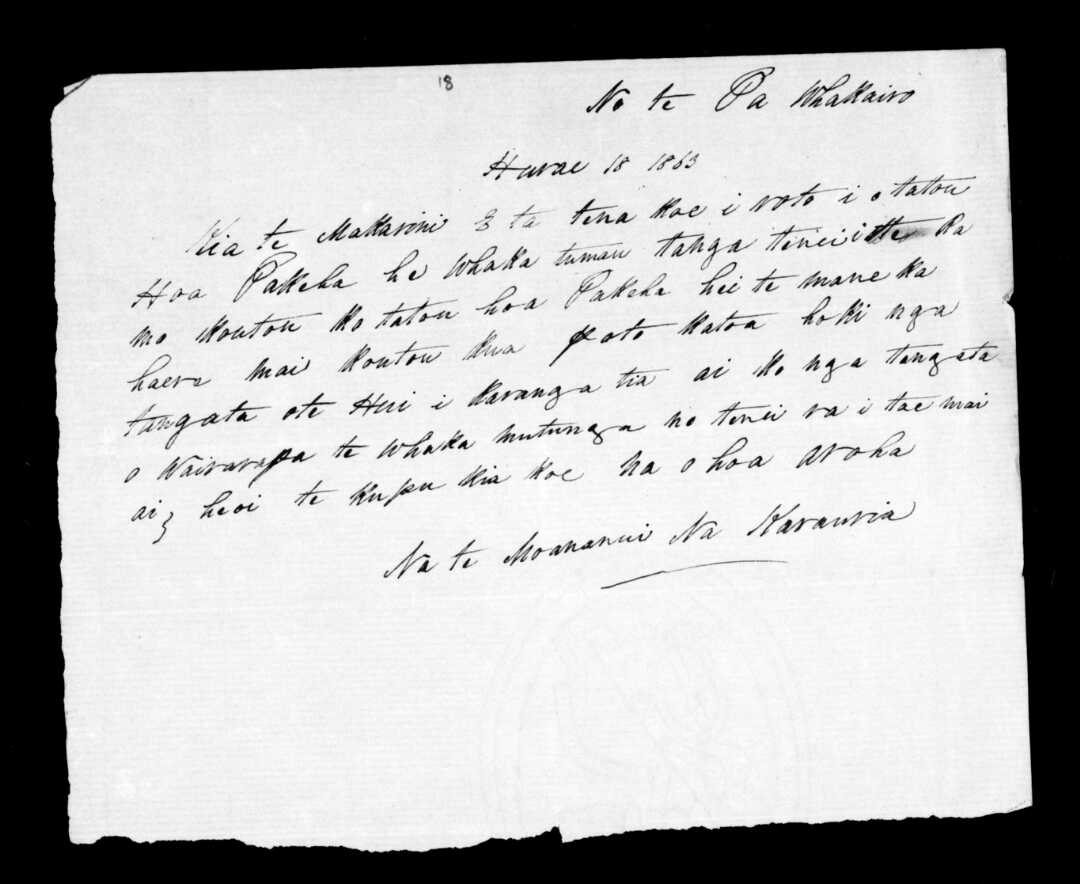 18
No te Pa Whakairo
Hurae 18 1863
Kia te Makarini E ta tena koe i roto i o tatou
Hoa Pakeha he Whaka tuman tanga tenei i te Ra
mo koutou ko tatou hoa Pakeha hei te mane ka
haere mai koutou kua poto katoa hoki nga
tangata ote Hui i karanga tia ai ko nga tangata
o Wairarapa te Whaka mutunga no tenei ra i tae mai
ai, heoi te kupu kia koe na o hoa aroha
Na te Moananui Na Karauria